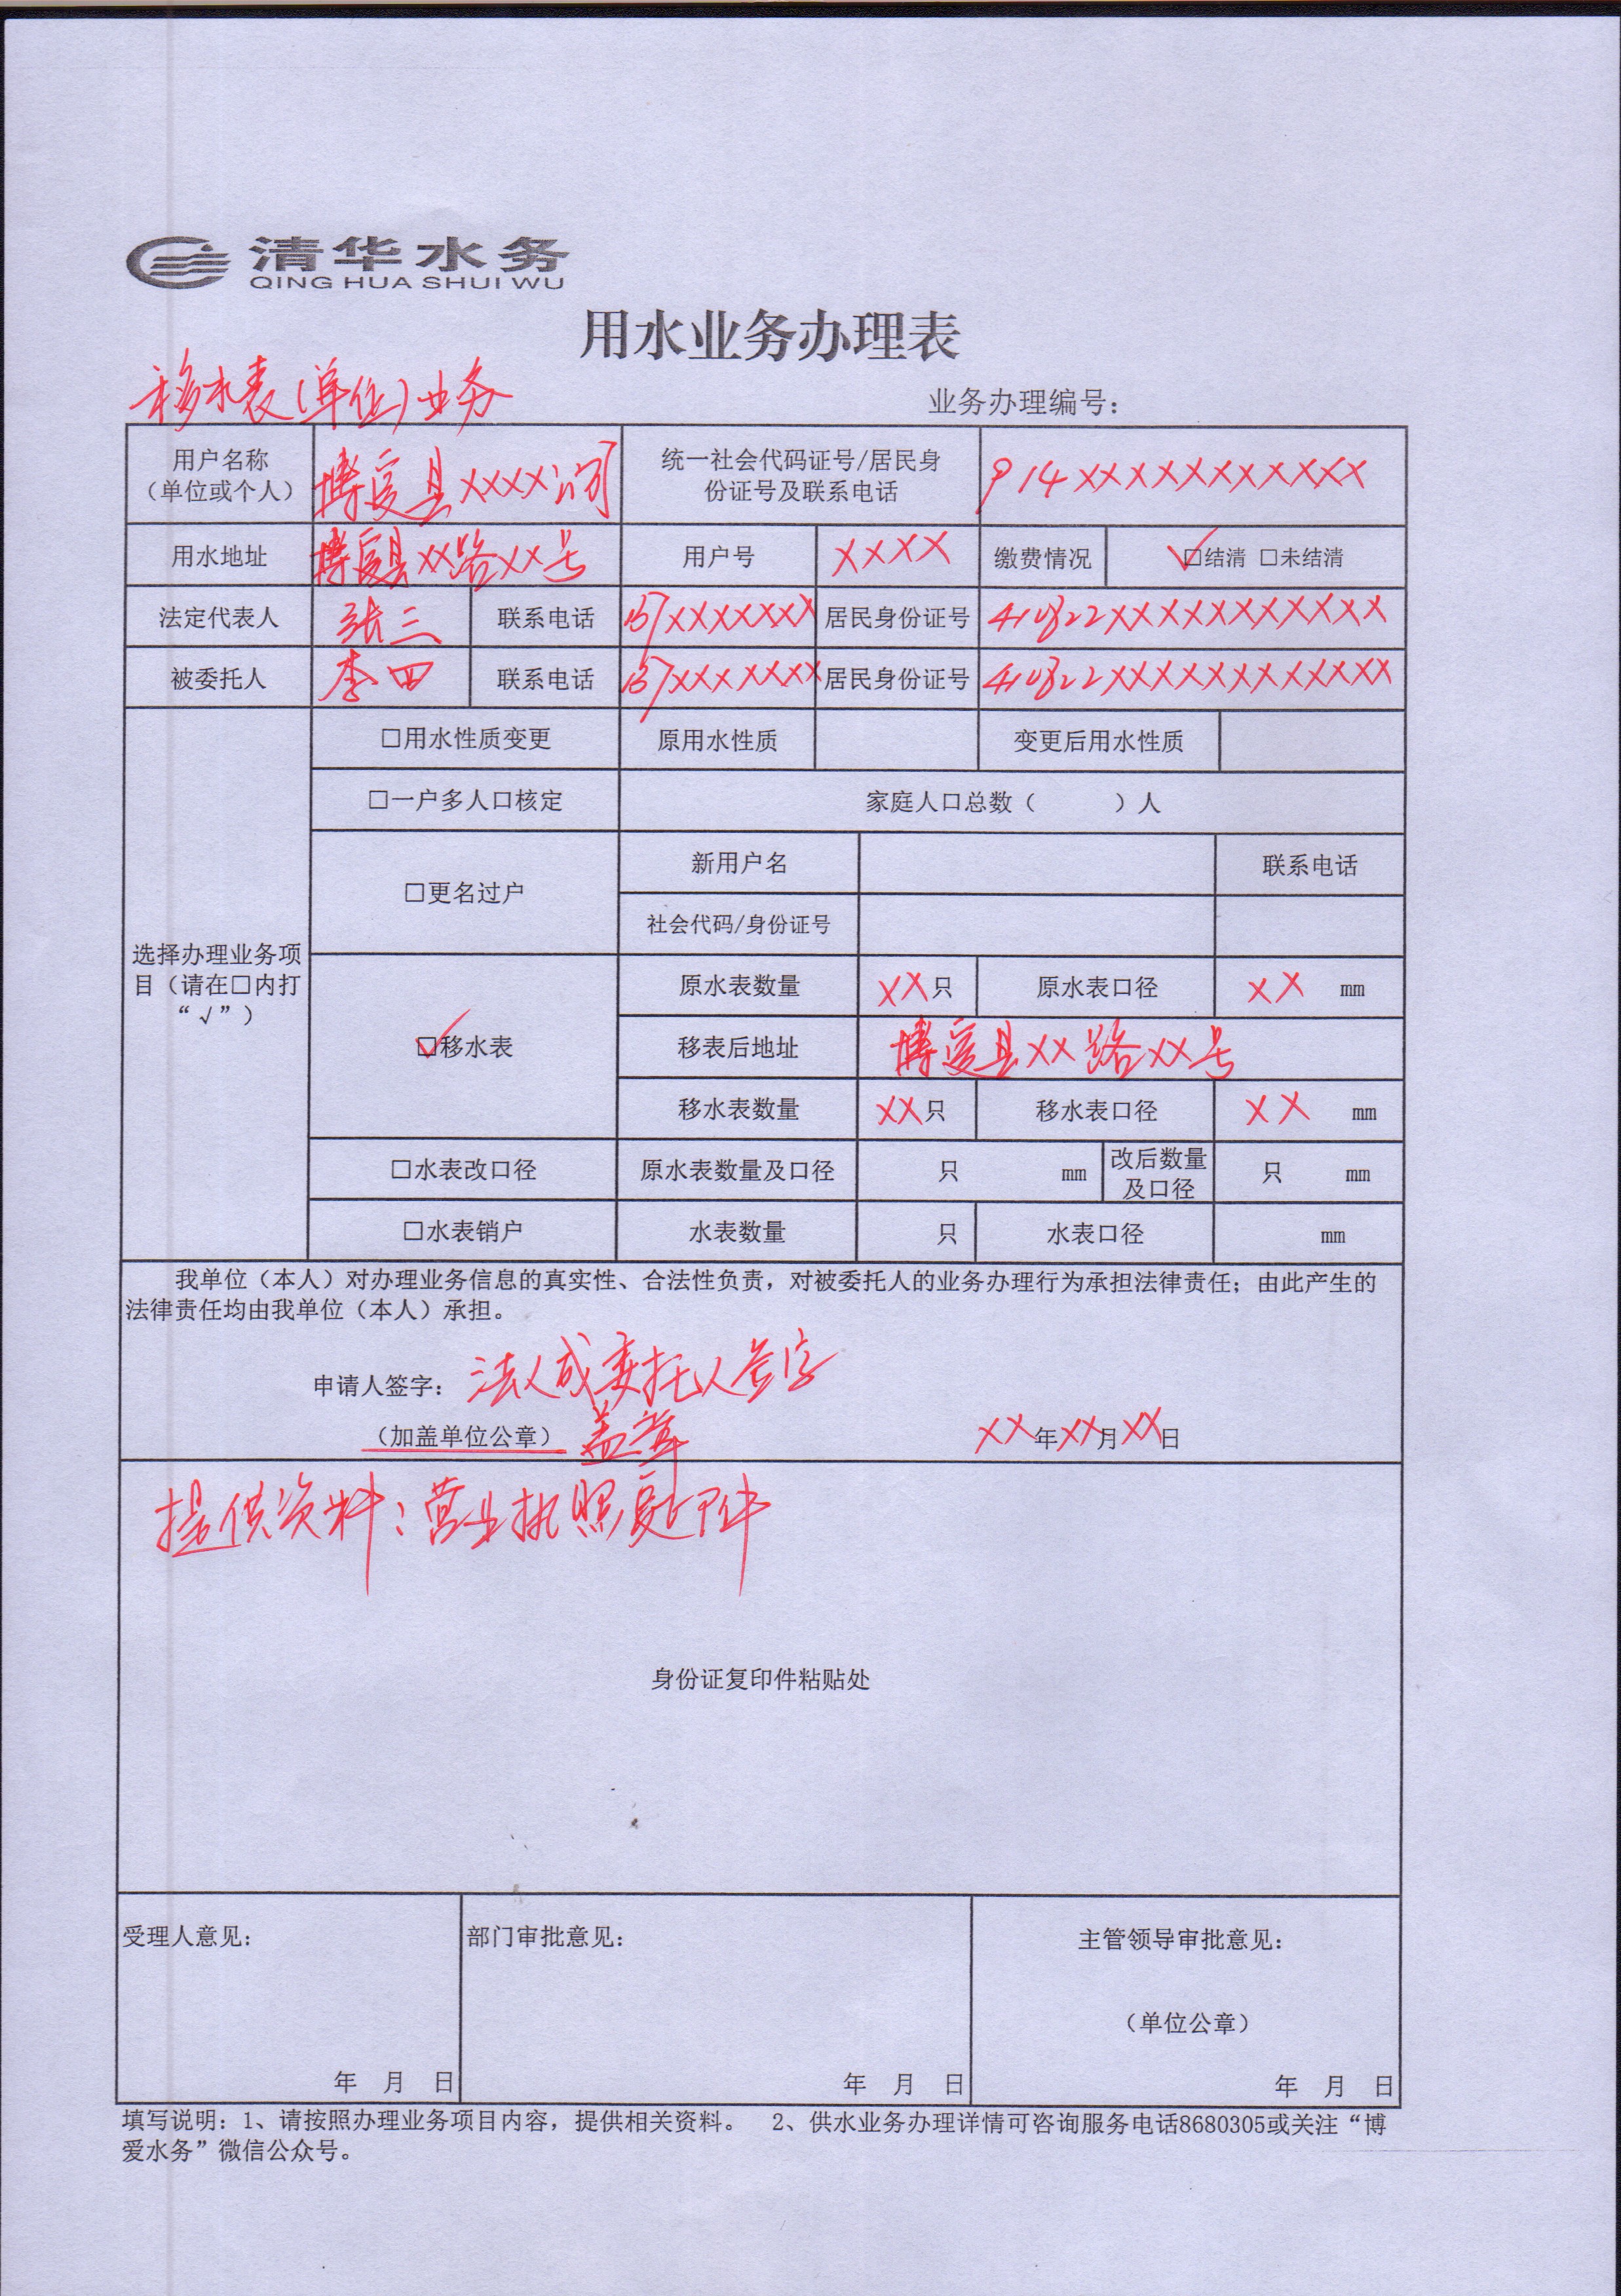 清华水务
QING HUA SHUI WU
用水业务办理表
移水表(单位)业务
业务办理编号:
用户名称（单位或个人） 博爱县XXXX公司 统一社会代码证号/居民身份证号及联系电话 914XXXXXXXXXXX
用水地址 博爱县XX路XX号 用户号 XXXX 缴费情况 ✓□结清 □未结清
法定代表人 张三 联系电话 157XXXXXXX 居民身份证号 410822XXXXXXXXXXXX
被委托人 李四 联系电话 157XXXXXXXX 居民身份证号 410822XXXXXXXXXXXX
选择办理业务项目（请在□内打“√”）
□用水性质变更 原用水性质 变更后用水性质
□一户多人口核定 家庭人口总数（ ）人
□更名过户 新用户名 联系电话
社会代码/身份证号
✓□移水表 原水表数量 XX只 原水表口径 XX mm
移表后地址 博爱县XX路XX号
移水表数量 XX只 移水表口径 XX mm
□水表改口径 原水表数量及口径 只 mm 改后数量及口径 只 mm
□水表销户 水表数量 只 水表口径 mm
我单位（本人）对办理业务信息的真实性、合法性负责，对被委托人的业务办理行为承担法律责任；由此产生的
法律责任均由我单位（本人）承担。
申请人签字： 法人或委托人签字
（加盖单位公章） 盖章 XX年XX月XX日
提供资料：营业执照复印件
身份证复印件粘贴处
受理人意见： 部门审批意见： 主管领导审批意见：
（单位公章）
年 月 日 年 月 日 年 月 日
填写说明：1、请按照办理业务项目内容，提供相关资料。 2、供水业务办理详情可咨询服务电话8680305或关注“博
爱水务”微信公众号。